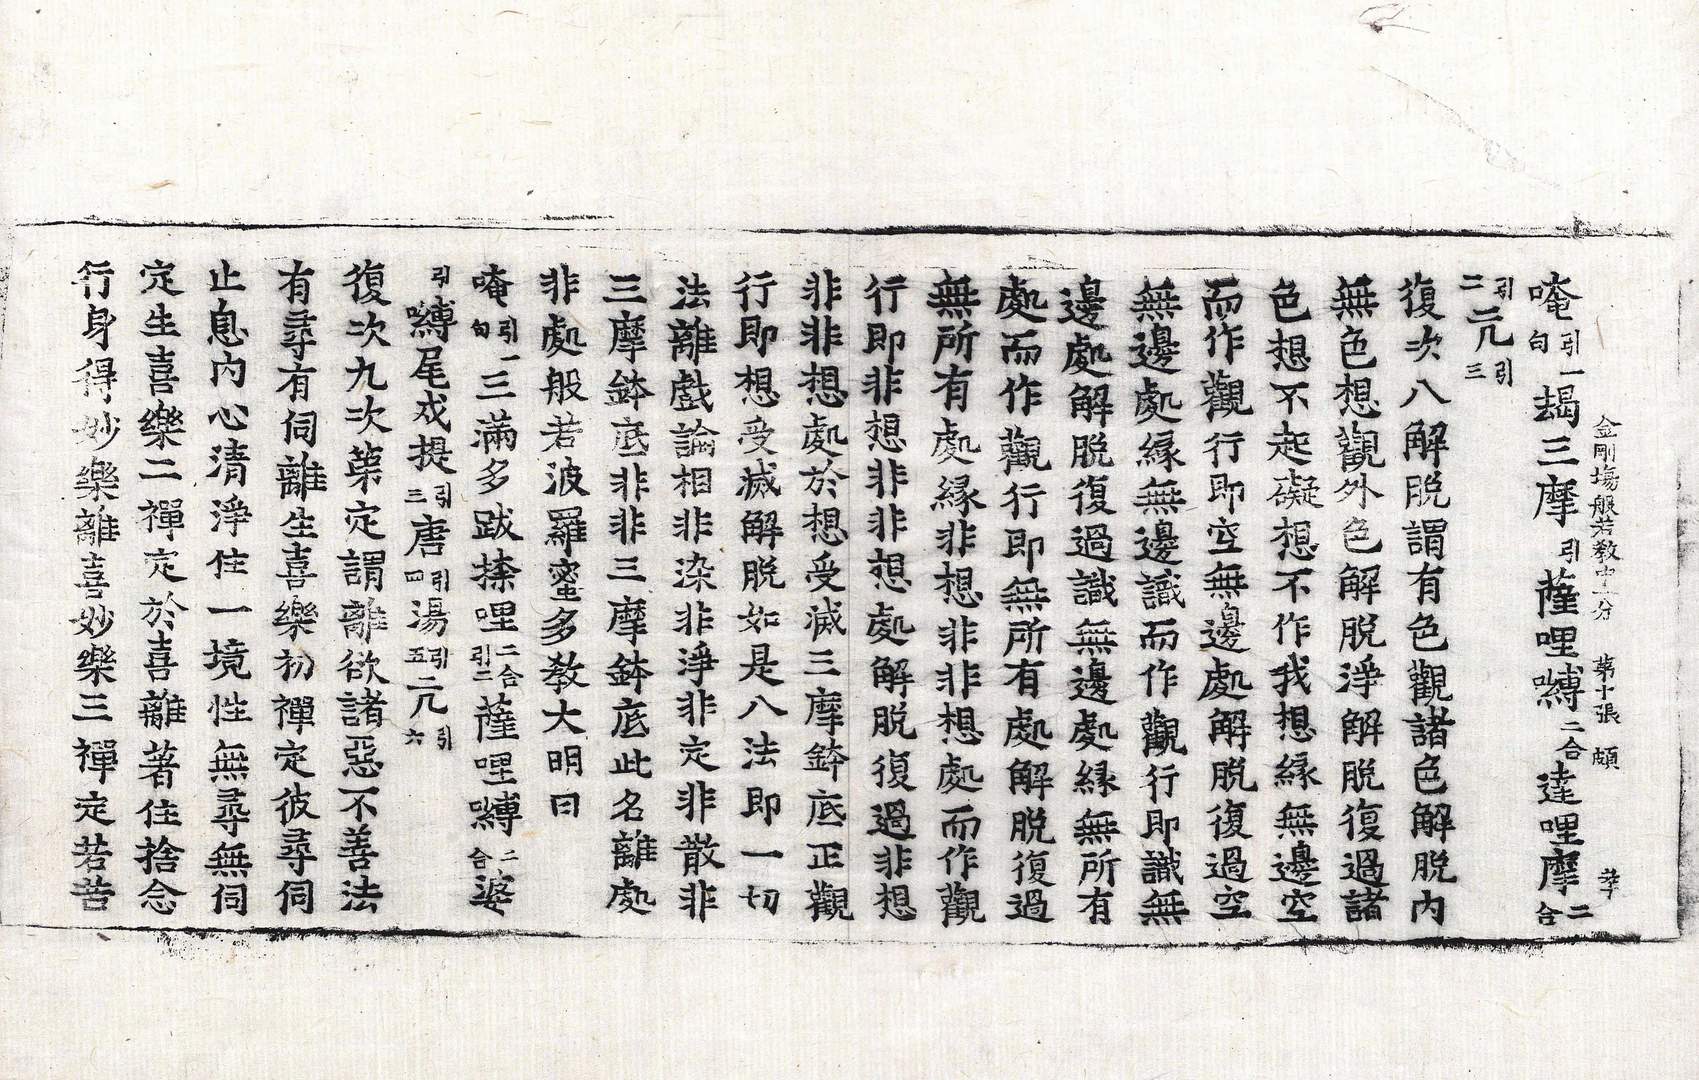 金剛場般若教中一分 第十張 頗
唵引一句朅三摩引薩哩嚩二合達哩摩二合
引二亢引三
復次八解脫謂有色觀諸色解脫內
無色想觀外色解脫淨解脫復過諸
色想不起礙想不作我想緣無邊空
而作觀行即空無邊處解脫復過空
無邊處緣無邊識而作觀行即識無
邊處解脫復過識無邊處緣無所有
處而作觀行即無所有處解脫復過
無所有處緣非想非非想處而作觀
行即非想非非想處解脫復過非想
非非想處於想受滅三摩鉢底正觀
行即想受滅解脫如是八法即一切
法離戲論相非染非淨非定非散非
三摩鉢底非非三摩鉢底此名離處
非處般若波羅蜜多教大明曰
唵引一句三滿多跋捺哩二合引二薩哩嚩二合婆
引嚩尾戍提引三唐引四湯引五亢引六
復次九次第定謂離欲諸惡不善法
有尋有伺離生喜樂初禪定彼尋伺
止息內心清淨住一境性無尋無伺
定生喜樂二禪定於喜離著住捨念
行身得妙樂離喜妙樂三禪定若苦